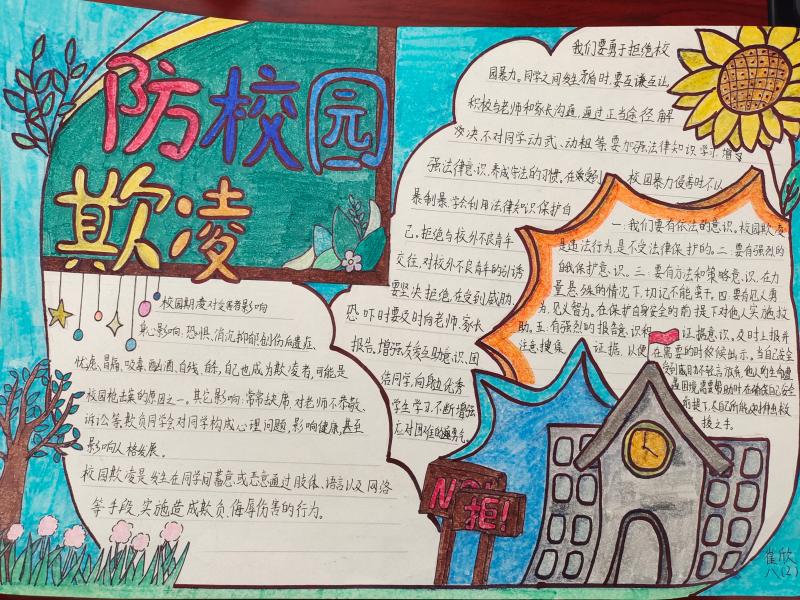 防校园
欺凌
校园期凌对受害者影响
身心影响:恐惧、消沉抑郁创伤后遗症、
忧虑、胃痛、吸毒、酗酒、自残、自杀,自己也成为欺凌者,可能是
校园枪击案的原因之一。其它影响:常常缺席、对老师不恭敬、
诉讼等欺负同学会对同学构成心理问题,影响健康,甚至
影响人格发展。
校园欺凌是发生在同学间蓄意或恶意通过肢体、语言以及网络
等手段,实施造成欺负、侮辱伤害的行为。
我们要勇于拒绝校
园暴力。同学之间发生矛盾时,要互谦互让,
积极与老师和家长沟通,通过正当途径解
决,不对同学动武、动粗等,要加强法律知识学习,增
强法律意识,养成守法的习惯。在遭受到校园暴力侵害时不以
暴制暴,学会利用法律知识保护自
己。拒绝与校外不良青年
交往,对校外不良青年的引诱
要坚决拒绝,在受到威胁、
恐吓时要及时向老师、家长
报告。增强友爱互助意识,团
结同学,向身边优秀
学生学习,不断增强
应对困难的勇气。
一:我们要有依法的意识。校园欺凌
是违法行为是不受法律保护的。二:要有强烈的
自我保护意识。三:要有方法和策略意识,在力
量悬殊的情况下,切记不能蛮干。四:要有见义勇
为,见义智为,在保护自身安全的前提下对他人实施救
助。五:有强烈的报告意识和证据意识,及时上报并
注意搜集证据,以便在需要的时候候出示。当自己安全
受到威胁不轻言放弃,他人的生命遭
遇困境,需要帮助时在确保自己安全
前提下,尽自己所能及时伸出救
援之手。
NO!
拒!
崔欣
八(2)